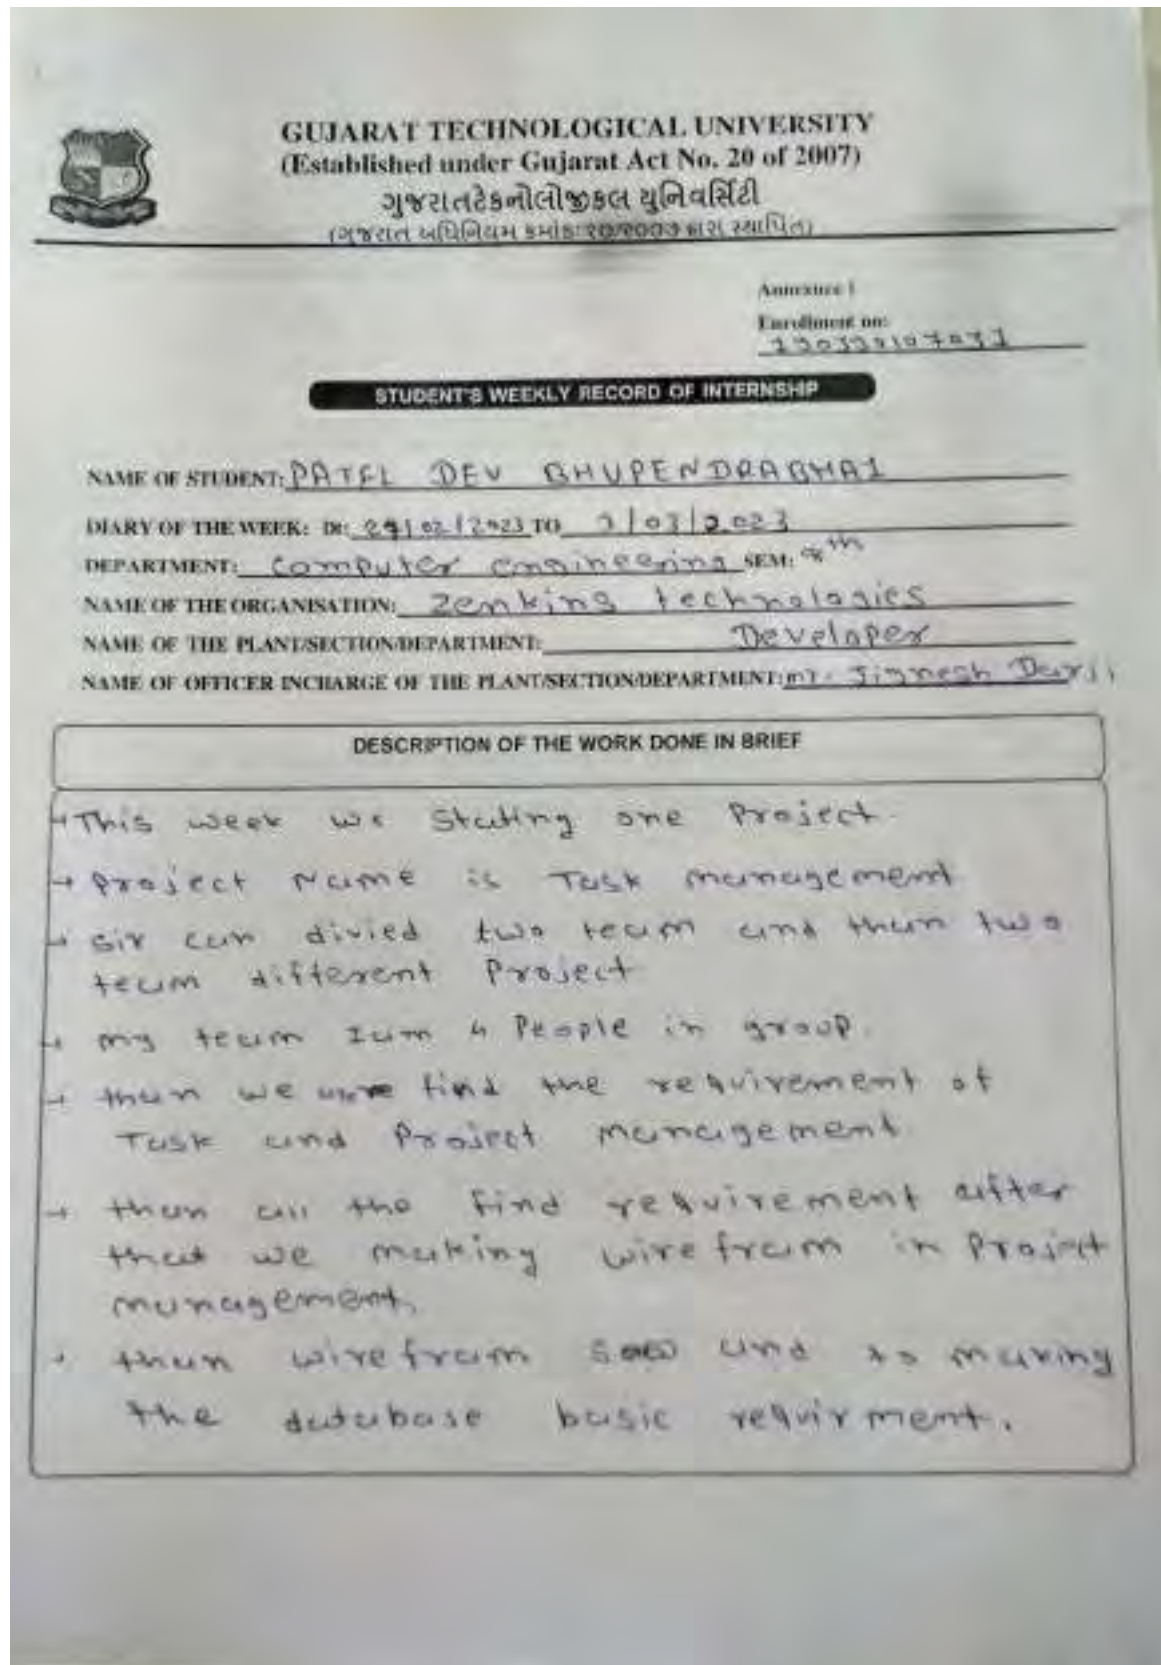 GUJARAT TECHNOLOGICAL UNIVERSITY
(Established under Gujarat Act No. 20 of 2007)
ગુજરાતટેકનોલોજીકલ યુનિવર્સિટી
(ગુજરાત અધિનિયમ ક્રમાંક: ૨૦/૨૦૦૭ દ્વારા સ્થાપિત)
Annexure I
Enrollment no:
STUDENT'S WEEKLY RECORD OF INTERNSHIP
NAME OF STUDENT: PATEL DEV BHUPENDRABHAI
DIARY OF THE WEEK: Dt: 27/02/2023 TO /03/2023
DEPARTMENT: Computer engineering SEM: 8th
NAME OF THE ORGANISATION: Zenking technologies
NAME OF THE PLANT/SECTION/DEPARTMENT: Developer
NAME OF OFFICER INCHARGE OF THE PLANT/SECTION/DEPARTMENT: mr. Jignesh Darji
DESCRIPTION OF THE WORK DONE IN BRIEF
→ This week we Stating one Project.
→ Project Name is Task management
→ sir can divied two team and than two
team different Project
→ my team Iam 4 People in group.
→ than we find the requirement of
Task and Project management.
→ than all the find requirement after
that we making wirefram in Project
management.
→ than wirefram and to making
the database basic requirment.